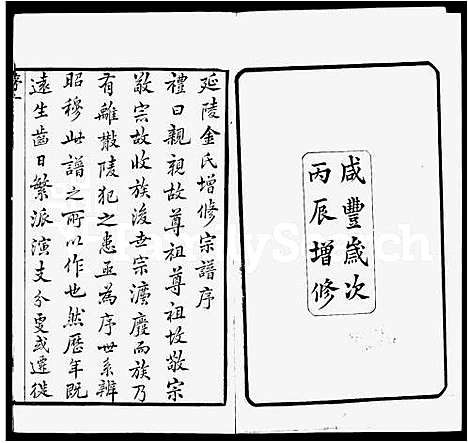 咸豐歲次
丙辰增修
延陵金氏增修宗譜序
禮曰親親故尊祖尊祖故敬宗
敬宗故收族後世宗灋廢而族乃
有離散陵犯之患亟為序世系辨
昭穆此譜之所以作也然歷年既
遠生齒日繁派演支分或遷徙